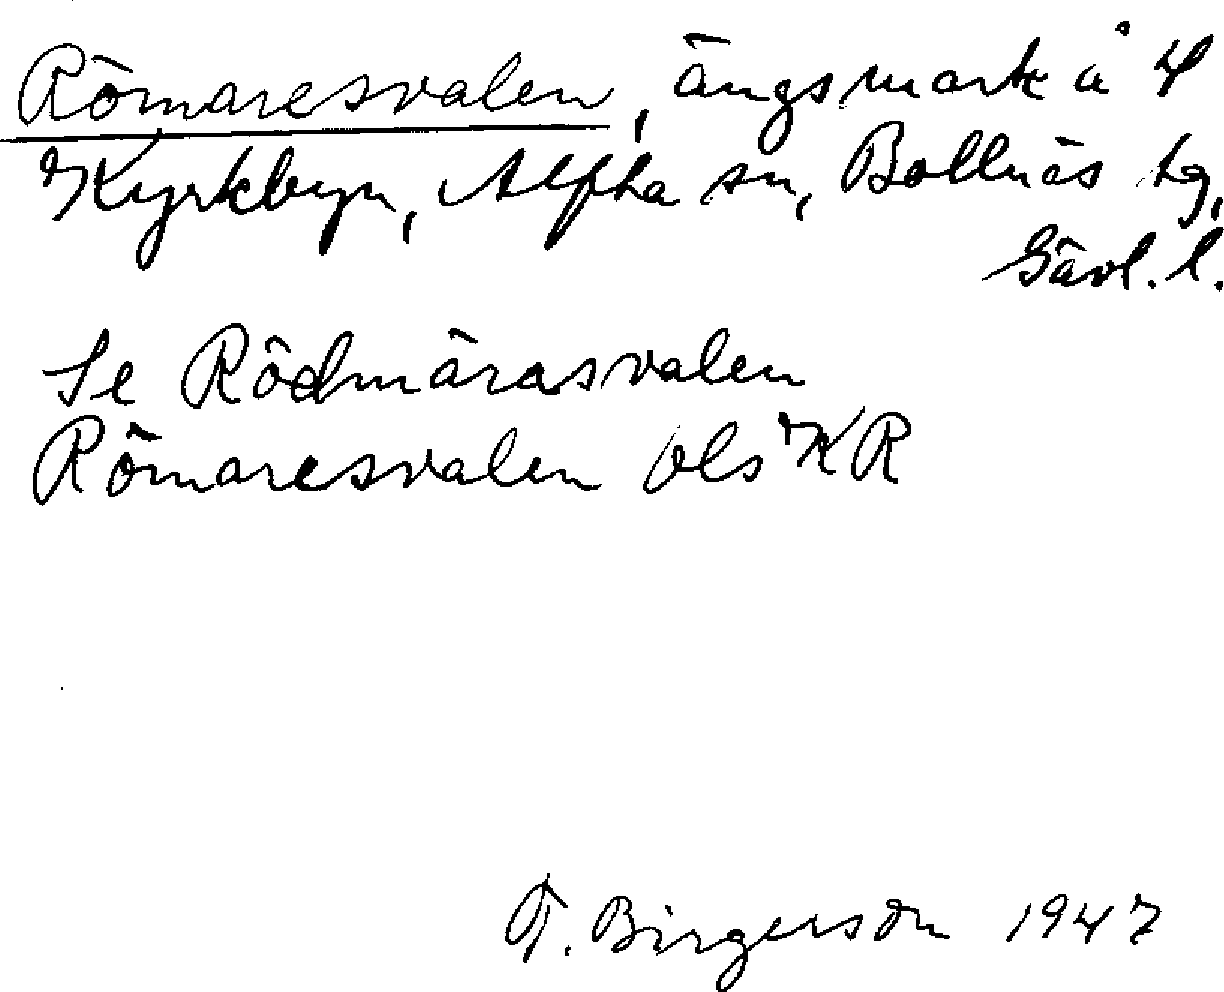 Römaresvalen, ängsmark å 4
Kyrkbyn, Alfta sn, Bollnäs tg,
Gävl. l.
Se Rödmärasvalen
Römaresvalen ols KR
T. Birgerson 1947